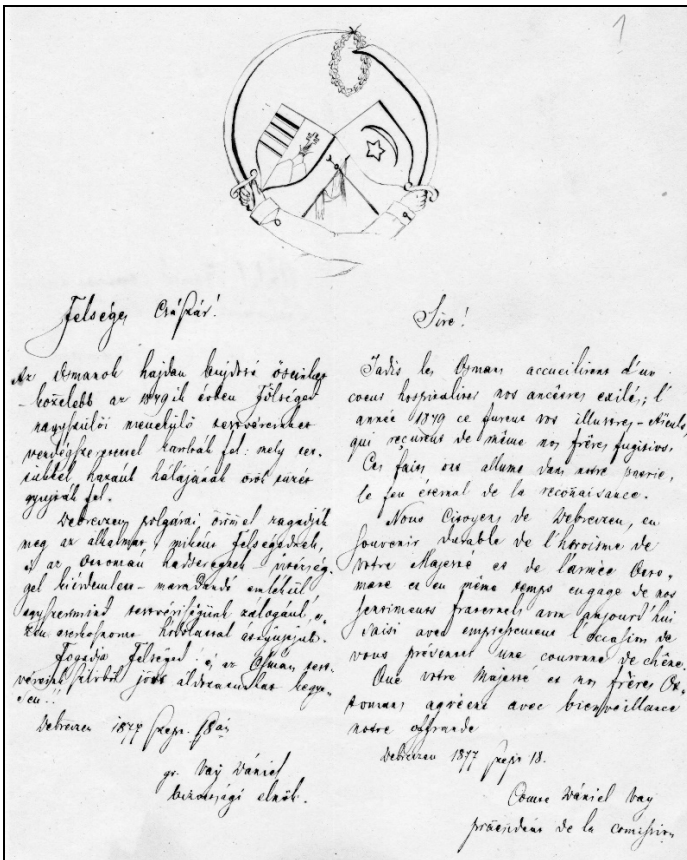 1
Felséges Császár!
Az Osmanok hajdan bujdosó őseinket
– közelebb az 1849ik évben Fölséged
nagyszülői menekülő testvéreinket
vendégszeretettel karolták fel: mely tet-
tükkel hazánk hálájának örök tüzét
gyujták fel.
Debreczen polgárai örömmel ragadják
meg az alkalmat, miként Felségednek,
s az Ottomán hadseregnek vitézség-
gel kiérdemlett – maradandó emlékül
egyszersmind testvériségünk zálogául, e
hódolattal átnyujtsák.
Fogadja Felséged! s az Osmán test-
vérzet jött áldozatunkat kegye-
sen!!
Debreczen 1877 szept. 18án
gr. Vay Dániel
bizottsági elnök.
Sire!
Jadis les Osmans accueillirent d'un
coeur hospitalier nos ancêtres exilés; l'
année 1849 ce furent vos illustres – Aïeuls,
qui reçurent de même nos frères fugitivs.
Ces faits ont allumé dans notre patrie,
le feu éternal de la reconnaisance.
Nous Citoyens de Debreczen, en
souvenir durable de l'héroisme de
Votre Majesté et de l'armée Otto-
mane et en même temps engage de nos
sentiments fraternels avon aujourd'hui
saisi avec empressement l'occasion de
vous présenter une couronne de chêne.
Que votre Majesté et nos frères Ot-
tomans agréent avec bienveillance
notre offrande
Debreczen 1877 sept 18.
Comte Dániel Vay
président de la comission